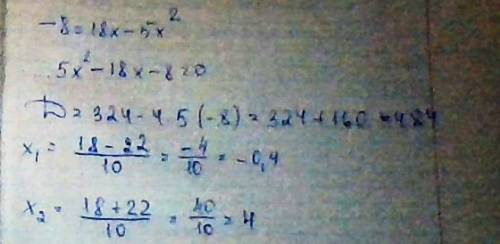 -8=18x-5x²
5x²-18x-8=0
D=324-4·5(-8)=324+160=484
x₁=(18-22)/10=-4/10=-0,4
x₂=(18+22)/10=40/10=4